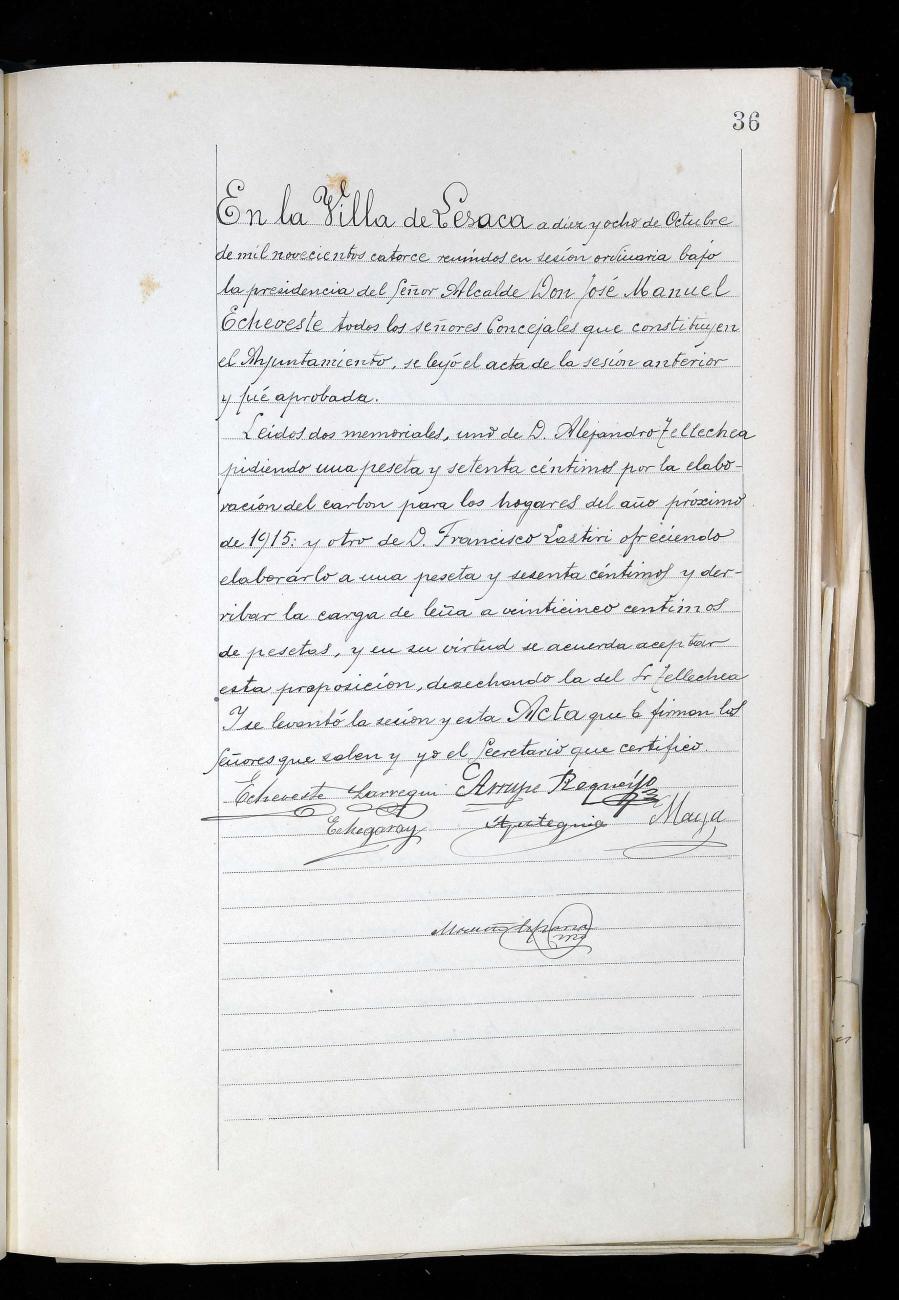 36
En la Villa de Lesaca a diez y ocho de Octubre
de mil novecientos catorce reunidos en sesión ordinaria bajo
la presidencia del Señor Alcalde Don José Manuel
Echeveste todos los señores Concejales que constituyen
el Ayuntamiento, se leyó el acta de la sesión anterior
y fué aprobada.
Leidos dos memoriales, uno de D. Alejandro Tellechea
pidiendo una peseta y setenta céntimos por la elabo-
ración del carbon para los hogares del año próximo
de 1915: y otro de D. Francisco Lastiri ofreciendo
elaborarlo a una peseta y sesenta céntimos y der-
ribar la carga de leña a veinticinco centimos
de pesetas, y en su virtud se acuerda aceptar
esta proposición, desechando la del Sr Tellechea
Y se levantó la sesión y esta Acta que la firman los
Señores que saben y yo el Secretario que certifico.
Echeveste Larregui Arrupe Requeijo
Echegaray Apeteguia Maya